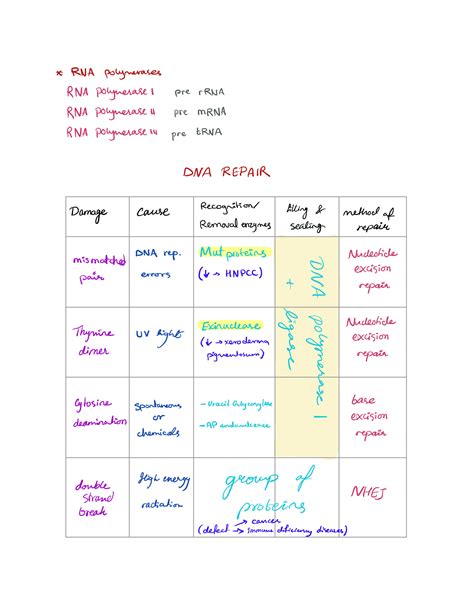 * RNA polymerases
RNA polymerase I pre rRNA
RNA polymerase II pre mRNA
RNA polymerase III pre tRNA
DNA REPAIR
Damage
Cause
Recognition/
Removal enzymes
filling &
sealing
method of
repair
mismatched
pair
DNA rep.
errors
Mut proteins
(↓ → HNPCC)
DNA polymerase I
+ ligase
Nucleotide
excision
repair
Thymine
dimer
UV light
Exinuclease
(↓ → xeroderma
pigmentosum)
Nucleotide
excision
repair
Cytosine
deamination
Spontaneous
or
chemicals
- Uracil Glycosylase
- AP endonuclease
base
excision
repair
double
strand
break
High energy
radiation
group of
proteins
→ cancer
(defect → immune deficiency diseases)
NHEJ